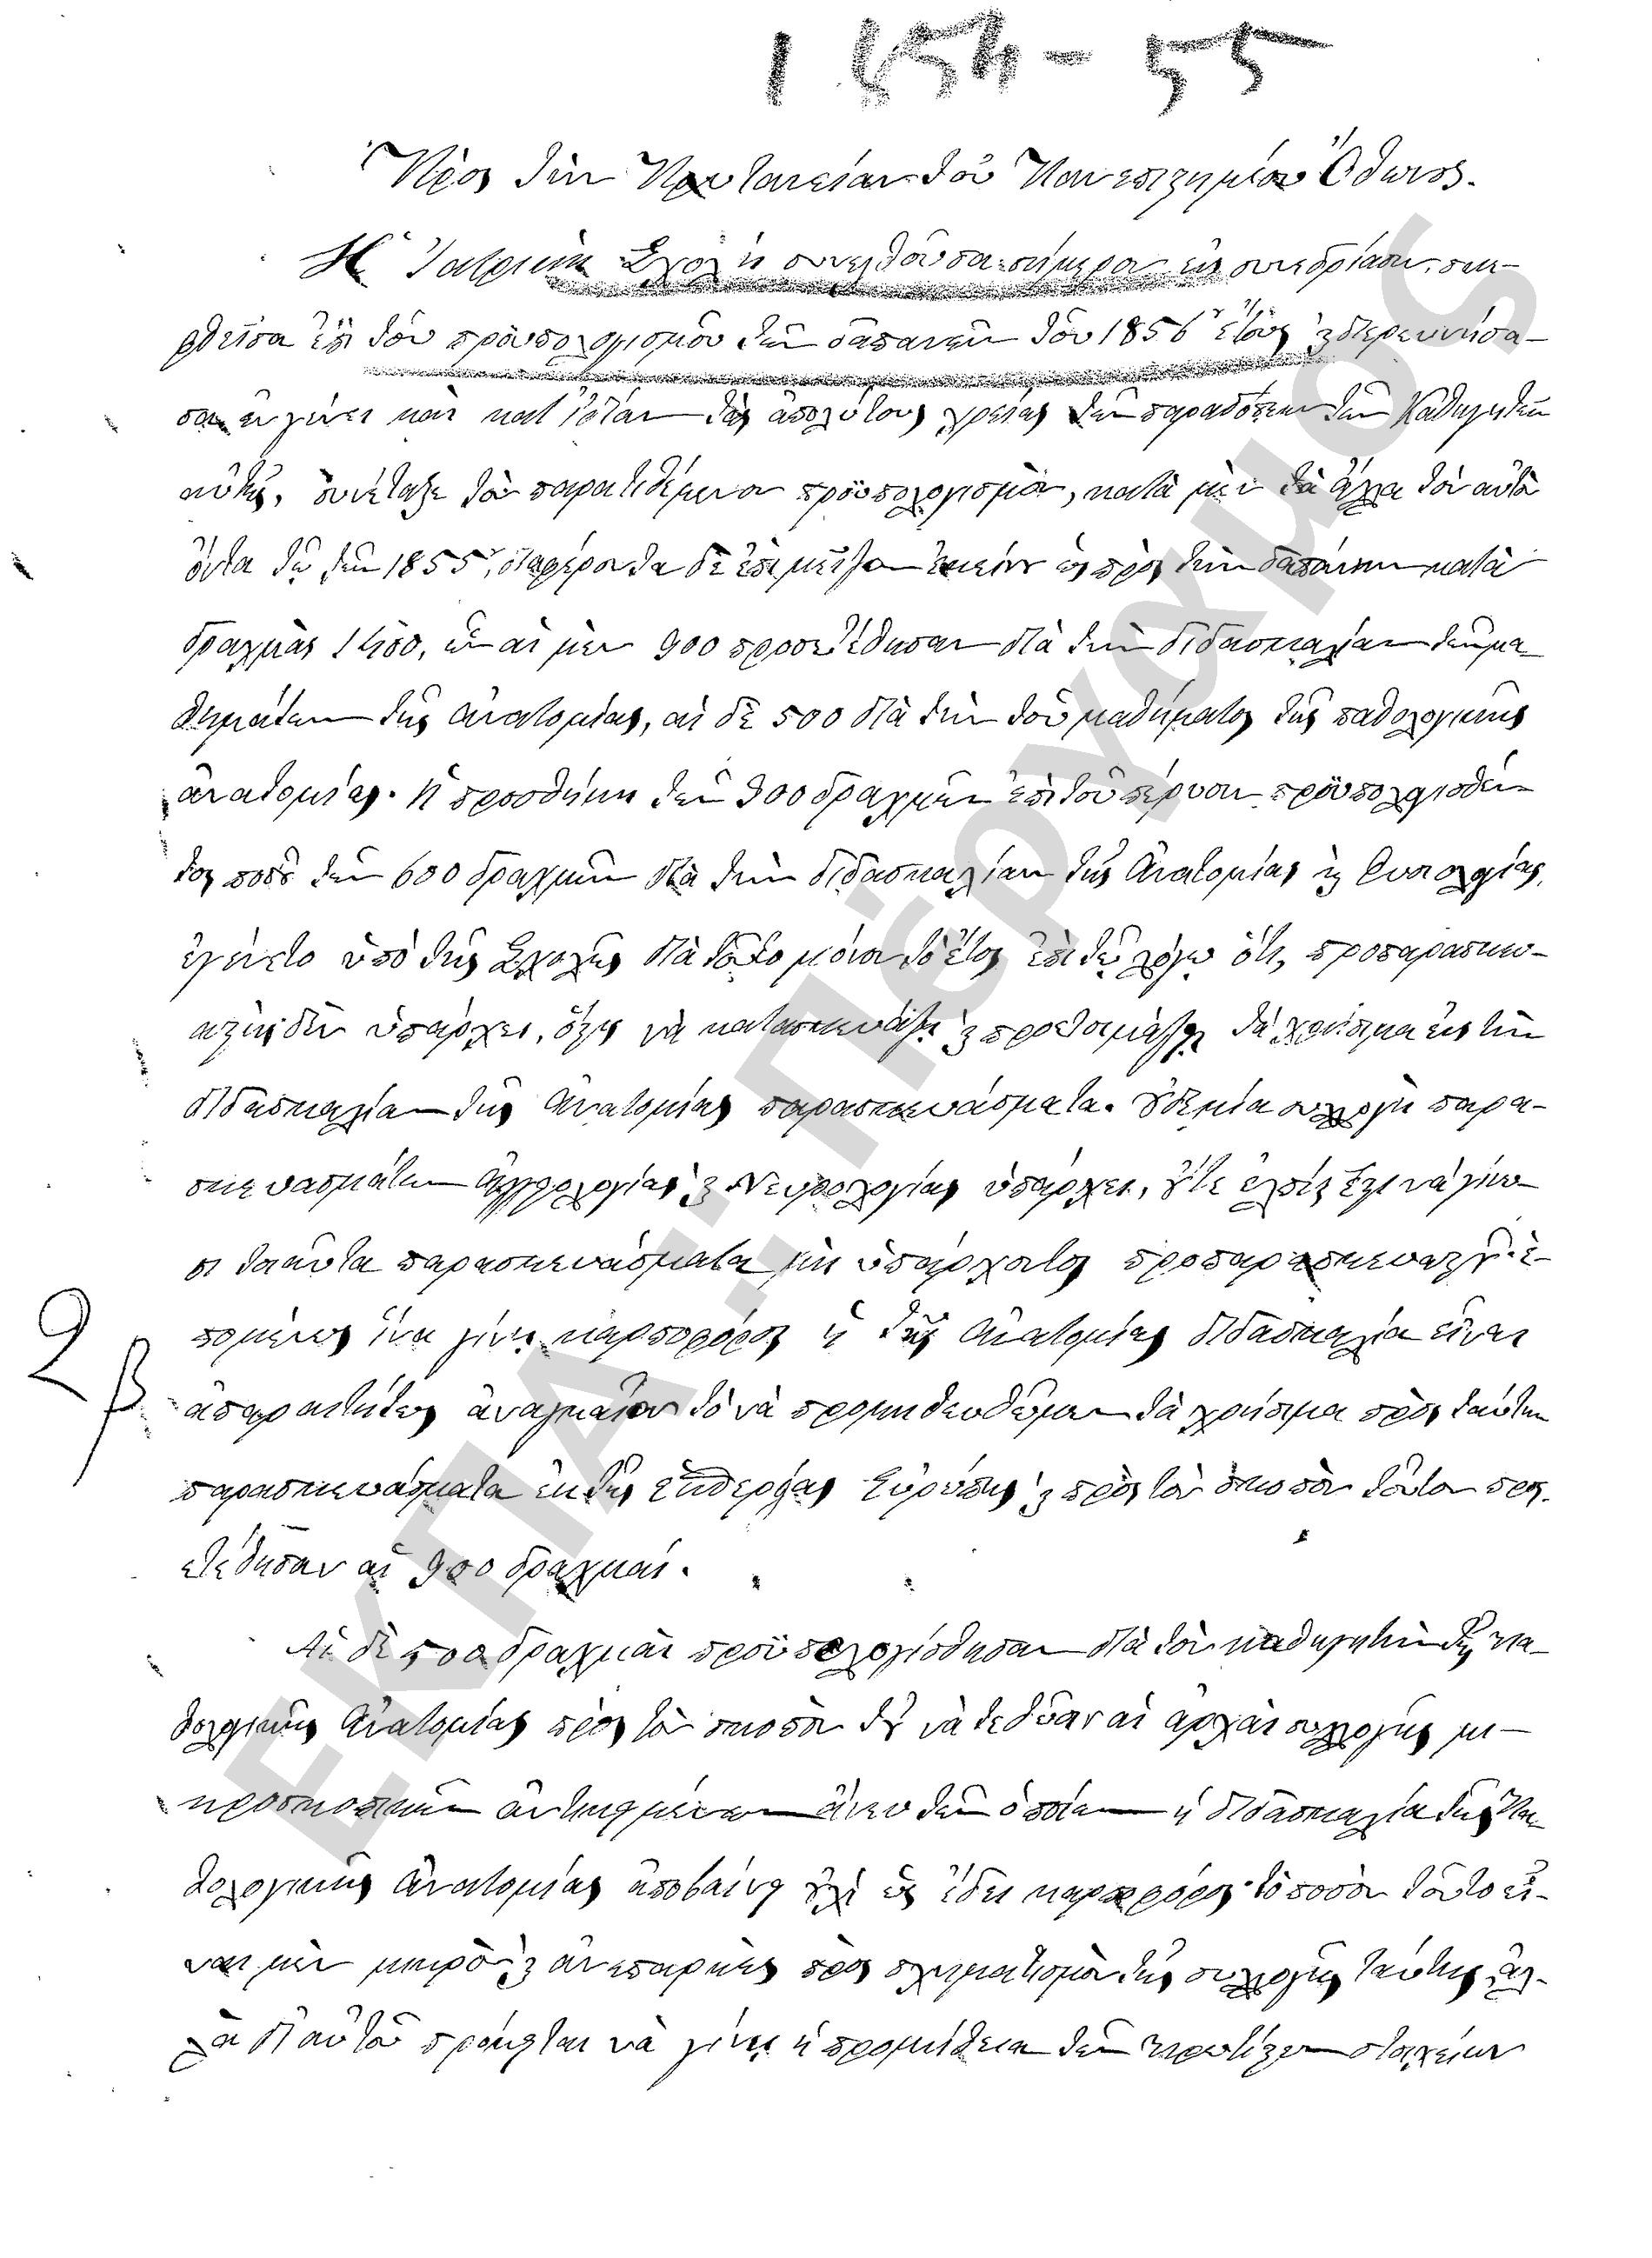 1854-55
Πρὸς τὴν Πρυτανείαν τοῦ Πανεπιστημίου Ὄθωνος.
Ἡ Ἰατρικὴ Σχολὴ συνελθοῦσα σήμερον εἰς συνεδρίασιν, σκε-
φθεῖσα ἐπὶ τοῦ προϋπολογισμοῦ τῶν δαπανῶν τοῦ 1856 ἔτους καὶ διερευνήσα-
σα ἐν γένει καὶ κατ' ἰδίαν τὰς ἀπολύτους χρείας τῶν παραδόσεων τῶν Καθηγητῶν
αὐτῆς, συνέταξε τὸν παρατιθέμενον προϋπολογισμὸν, κατὰ μὲν τὰ ἄλλα τὸν αὐτὸν
ὄντα τῷ τῶν 1855, διαφέροντα δὲ ἐπὶ μεῖζον ἐκείνου ὡς πρὸς τὴν δαπάνην κατὰ
δραχμὰς 1400, ὧν αἱ μὲν 900 προσετέθησαν διὰ τὴν διδασκαλίαν τῶν μα-
θημάτων τῆς Ἀνατομίας, αἱ δὲ 500 διὰ τὴν τοῦ μαθήματος τῆς παθολογικῆς
ἀνατομίας. Ἡ προσθήκη τῶν 900 δραχμῶν ἐπὶ τοῦ πέρυσι προϋπολογισθέν-
τος ποσοῦ τῶν 600 δραχμῶν διὰ τὴν διδασκαλίαν τῆς Ἀνατομίας καὶ Φυσιολογίας,
ἐγένετο ὑπὸ τῆς Σχολῆς διὰ τοῦτο μόνον τὸ ἔτος ἐπὶ τῷ λόγῳ ὅτι, προπαρασκευ-
αστὴς δὲν ὑπάρχει, ὅστις νὰ κατασκευάζῃ καὶ προετοιμάζῃ τὰ χρήσιμα εἰς τὴν
διδασκαλίαν τῆς Ἀνατομίας παρασκευάσματα. Οὐδεμία συλλογὴ παρα-
σκευασμάτων Ἀγγειολογίας καὶ Νευρολογίας ὑπάρχει, οὔτε ἐλπὶς ἔχει νὰ γίνω-
σι τοιαῦτα παρασκευάσματα μὴ ὑπάρχοντος προπαρασκευαστοῦ· ἑ-
πομένως ἵνα γίνῃ καρποφόρος ἡ τῆς Ἀνατομίας διδασκαλία εἶναι
2β
ἀπαραιτήτως ἀναγκαῖον τὸ νὰ προμηθευθῶμεν τὰ χρήσιμα πρὸς ταύτην
παρασκευάσματα ἐκ τῆς ἑσπερίας Εὐρώπης καὶ πρὸς τὸν σκοπὸν τοῦτον προσ-
ετέθησαν αἱ 900 δραχμαί.
Αἱ δὲ 500 δραχμαὶ προϋπελογίσθησαν διὰ τὸν καθηγητὴν τῆς Πα-
θολογικῆς Ἀνατομίας πρὸς τὸν σκοπὸν τοῦ νὰ τεθῶσιν αἱ ἀρχαὶ συλλογῆς μι-
κροσκοπικῶν ἀντικειμένων ἄνευ τῶν ὁποίων ἡ διδασκαλία τῆς Πα-
θολογικῆς Ἀνατομίας ἀποβαίνει οὐχὶ ὡς ἔδει καρποφόρος· τὸ ποσὸν τοῦτο εἶ-
ναι μὲν μικρὸν καὶ ἀνεπαρκὲς πρὸς σχηματισμὸν τῆς συλλογῆς ταύτης, ἀλ-
λὰ δι' αὐτοῦ πρόκειται νὰ γίνῃ ἡ προμήθεια τῶν πρωτίστων στοιχείων